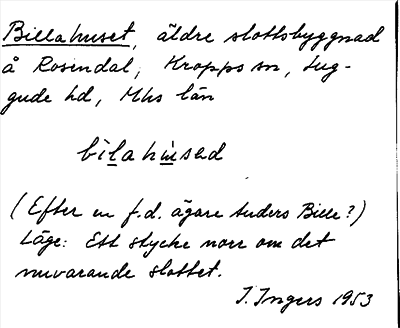 Billahuset, äldre slottsbyggnad
å Rosendal, Kropps sn, Lug-
gude hd, Mhs län
bilahused
(Efter en f.d. ägare Anders Bille?)
Läge: Ett stycke norr om det
nuvarande slottet.
I. Ingers 1953